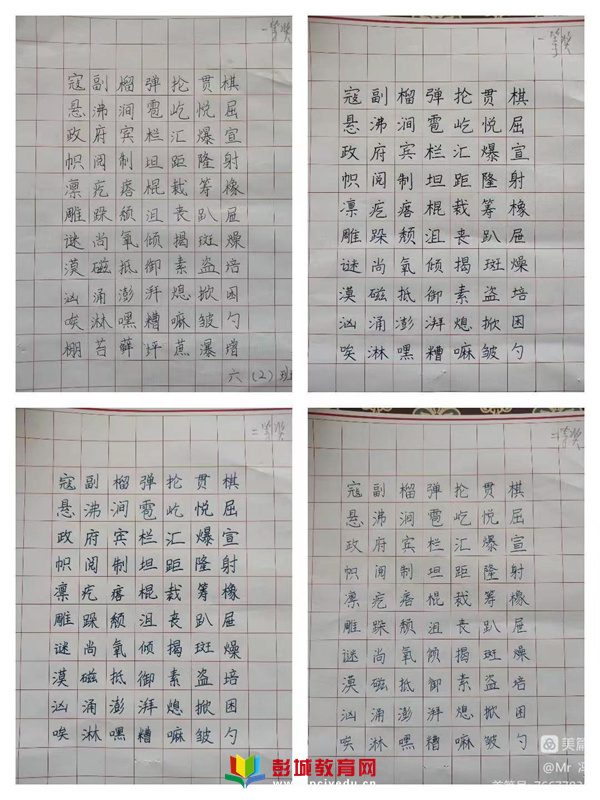 一等奖
寇副榴弹抡贯棋
悬沸涧雹屹悦屈
政府宾栏汇爆宣
帜阅制坦距隆射
凛疙瘩棍裁筹橡
雕跺颓沮丧趴屉
谜尚氧倾揭斑燥
漠磁抵御素盗培
汹涌澎湃熄掀困
唉淋嘿糟嘛皱勺
棚苔藓坪蔗瀑增
六(2)班
一等奖
寇副榴弹抡贯棋
悬沸涧雹屹悦屈
政府宾栏汇爆宣
帜阅制坦距隆射
凛疙瘩棍裁筹橡
雕跺颓沮丧趴屉
谜尚氧倾揭斑燥
漠磁抵御素盗培
汹涌澎湃熄掀困
唉淋嘿糟嘛皱勺
二等奖
寇副榴弹抡贯棋
悬沸涧雹屹悦屈
政府宾栏汇爆宣
帜阅制坦距隆射
凛疙瘩棍裁筹橡
雕跺颓沮丧趴屉
谜尚氧倾揭斑燥
漠磁抵御素盗培
汹涌澎湃熄掀困
唉淋嘿糟嘛皱勺
二等奖
寇副榴弹抡贯棋
悬沸涧雹屹悦屈
政府宾栏汇爆宣
帜阅制坦距隆射
凛疙瘩棍裁筹橡
雕跺颓沮丧趴屉
谜尚氧倾揭斑燥
漠磁抵御素盗培
汹涌澎湃熄掀困
唉淋嘿糟嘛皱勺
彭城教育网
美篇
@Mr